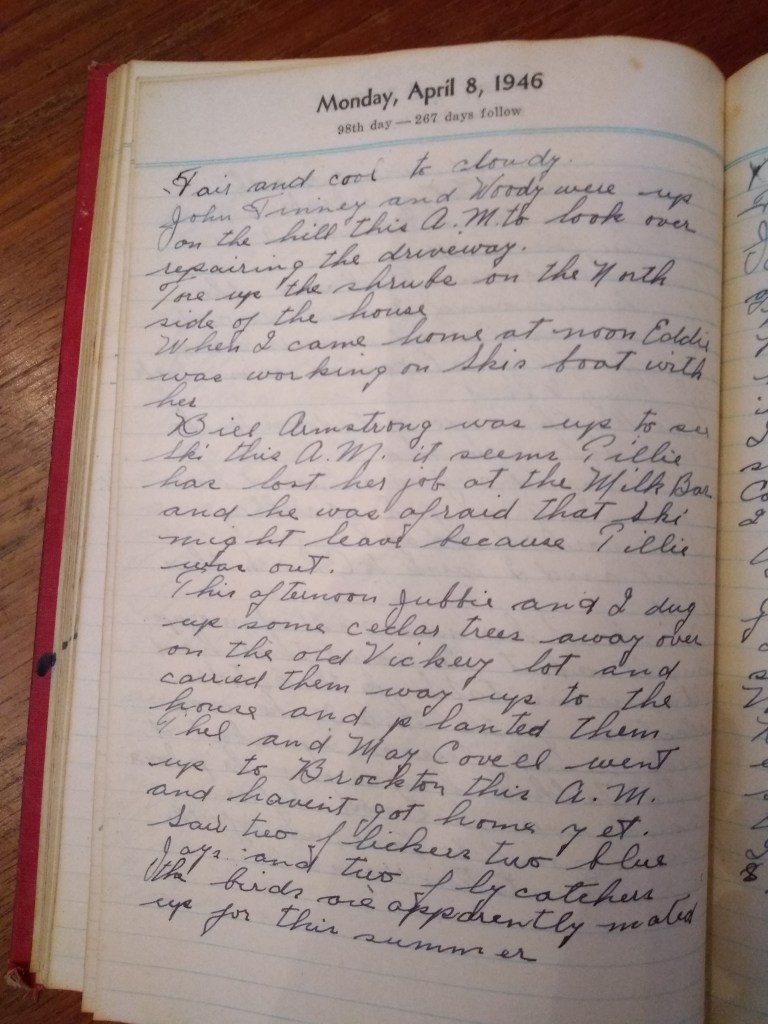 Monday, April 8, 1946
98th day — 267 days follow
Fair and cool to cloudy.
John Tinney and Woody were up
on the hill this A.M. to look over
repairing the driveway.
Tore up the shrubs on the North
side of the house
When I came home at noon Eddie
was working on Skis boat with
her
Bill Armstrong was up to see
Ski this A.M. it seems Tillie
has lost her job at the Milk Bar
and he was afraid that Ski
might leave because Tillie
was out.
This afternoon Jubbie and I dug
up some cedar trees away over
on the old Vickery lot and
carried them way up to the
house and planted them
Thel and May Covell went
up to Brockton this A.M.
and havent got home yet.
Saw two flickers two blue
Jays and two fly catchers
the birds are apparently mated
up for this summer